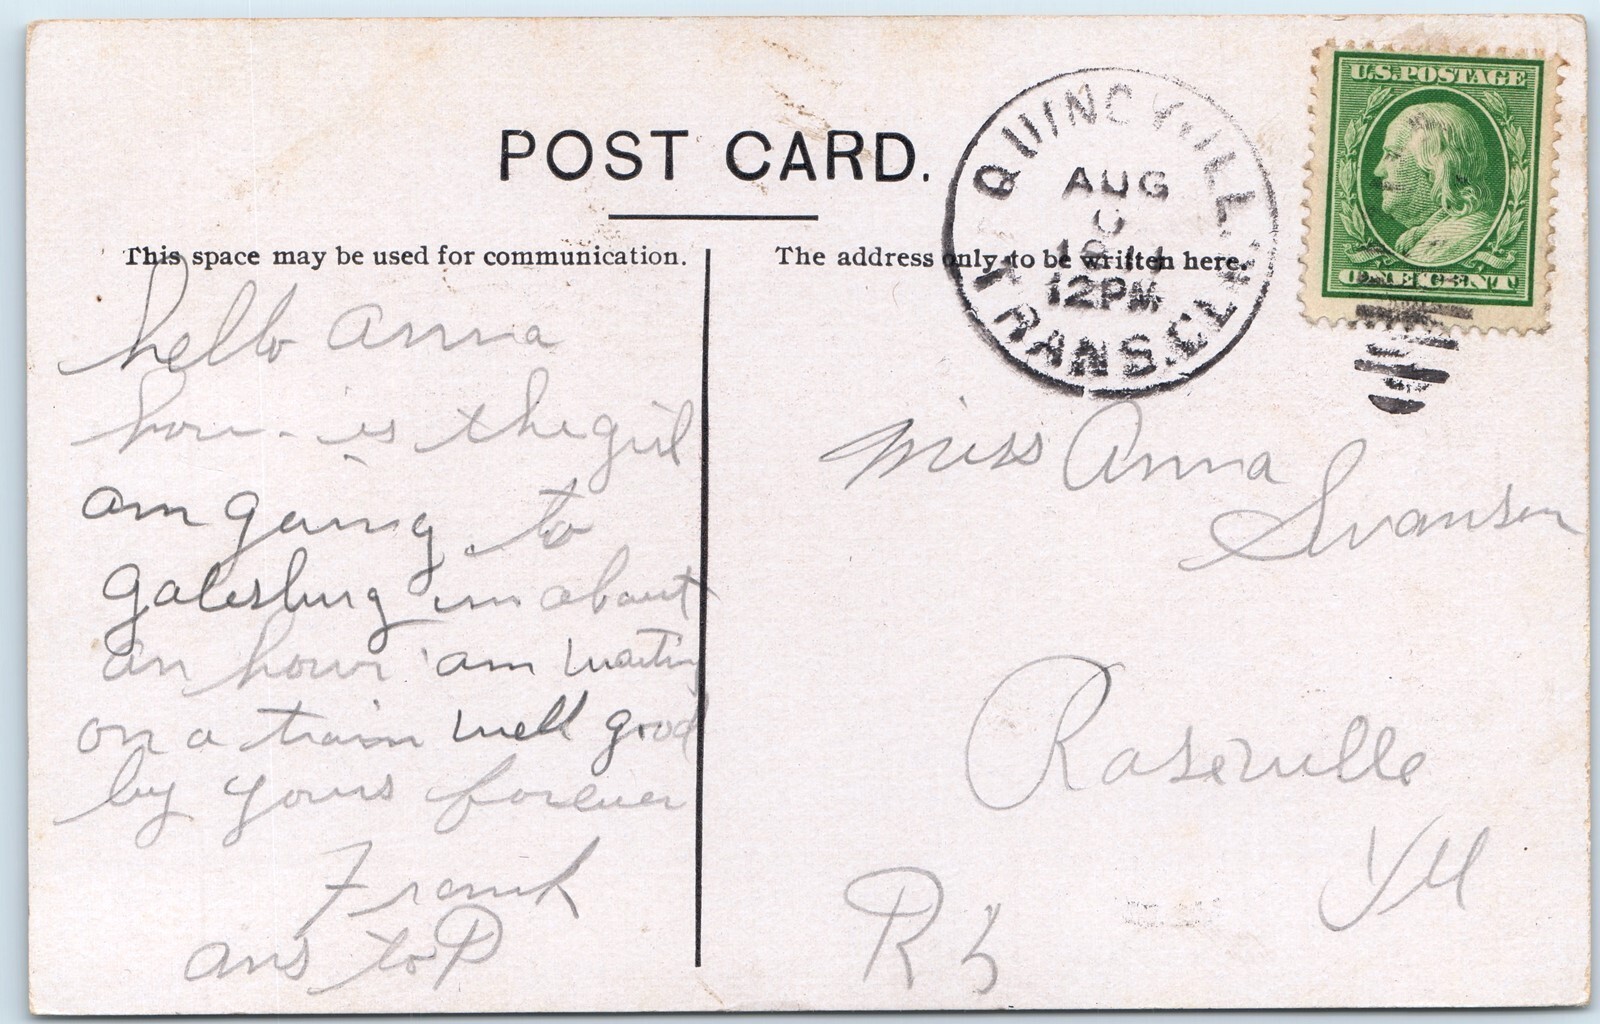 POST CARD.
This space may be used for communication.
The address only to be written here.
QUINCY, ILL.
AUG
12PM
TRANS. CLK.
U.S. POSTAGE
ONE CENT
hello Anna
how is the girl
am going to
Galesburg im about
an hour am waiting
on a train well good
by yours forever
Frank
ans to P
Miss Anna
Swanson
Roseville
Ill
R